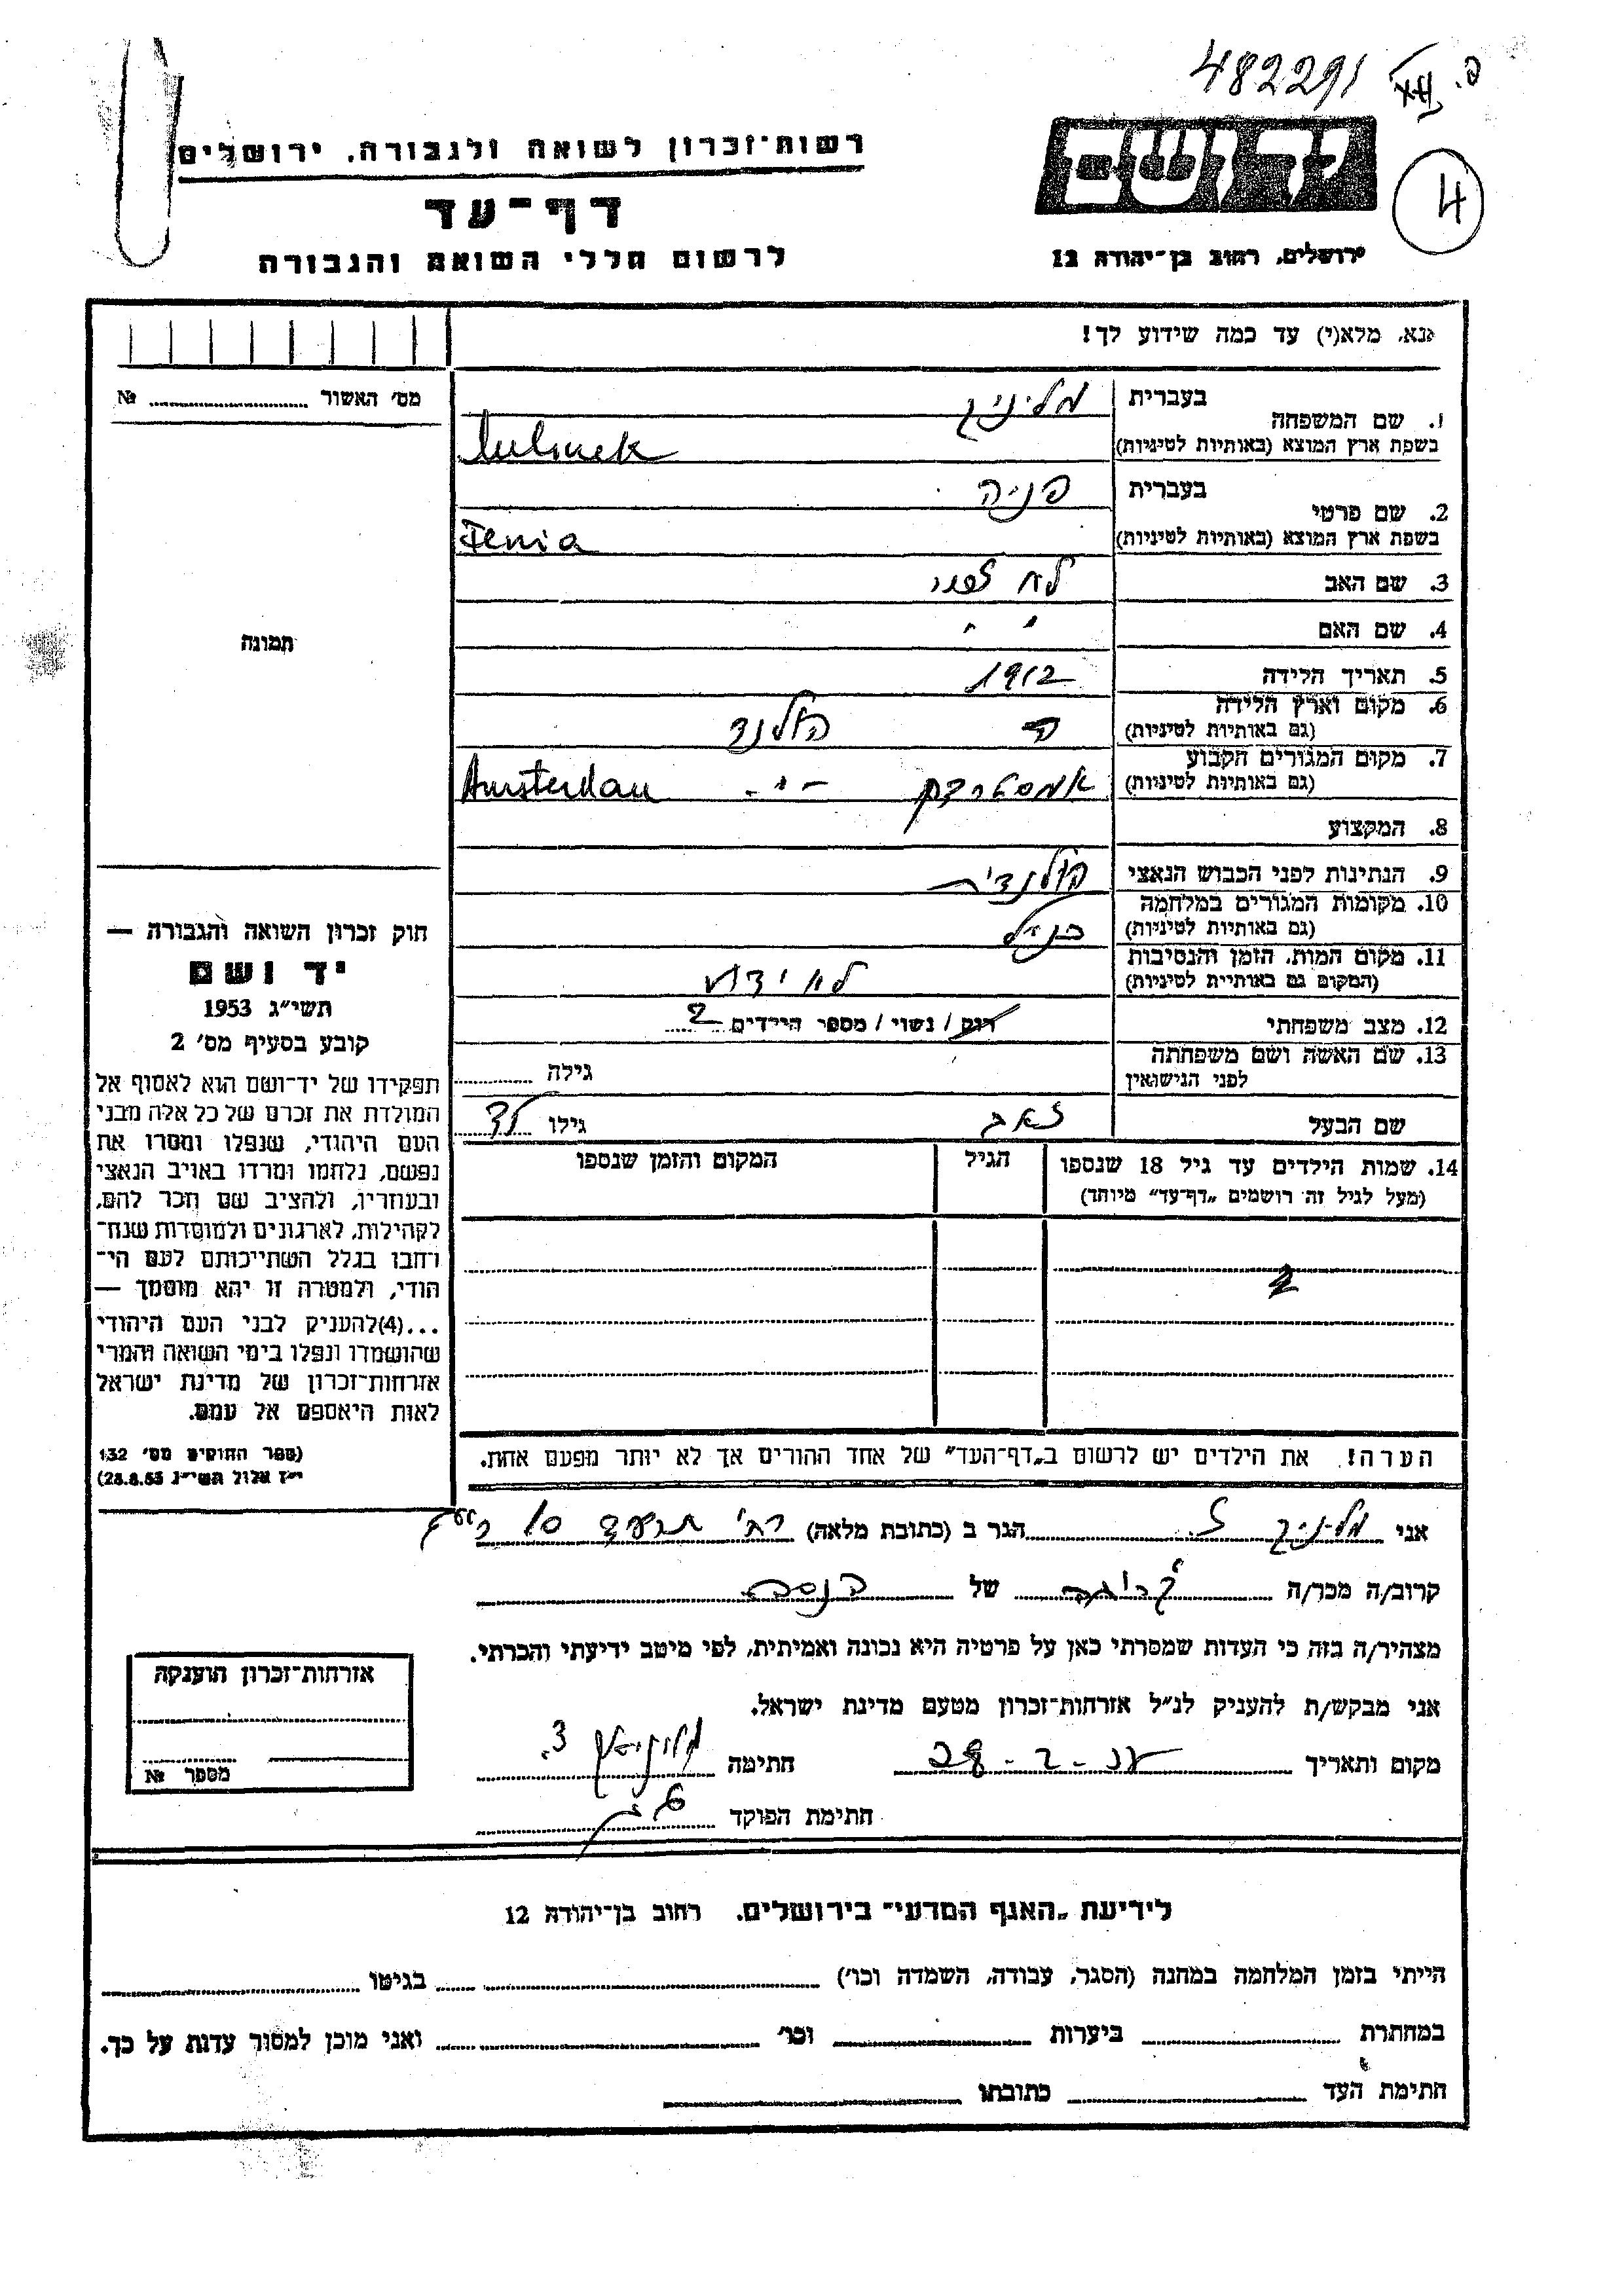 482291
4
יד ושם
רשות־זכרון לשואה ולגבורה, ירושלים
דף־עד
לרשום חללי השואה והגבורה
ירושלים, רחוב בן־יהודה 12
אנא, מלא(י) עד כמה שידוע לך!
מס׳ האשור № 
1. שם המשפחה
בעברית
בשפת ארץ המוצא (באותיות לטיניות)
2. שם פרטי
בעברית פניה
בשפת ארץ המוצא (באותיות לטיניות) Fenia
3. שם האב
4. שם האם
5. תאריך הלידה 1912
6. מקום וארץ הלידה הולנד
(גם באותיות לטיניות)
7. מקום המגורים הקבוע אמסטרדם -"- Amsterdam
(גם באותיות לטיניות)
8. המקצוע
9. הנתינות לפני הכבוש הנאצי הולנדית
10. מקומות המגורים במלחמה כנ״ל
(גם באותיות לטיניות)
11. מקום המות, הזמן והנסיבות לא ידוע
(המקום גם באותיית לטיניות)
12. מצב משפחתי רווק / נשוי / מספר הילדים 2
13. שם האשה ושם משפחתה גילה
לפני הנישואין
שם הבעל זאב גילו
14. שמות הילדים עד גיל 18 שנספו הגיל המקום והזמן שנספו
(מעל לגיל זה רושמים „דף־עד״ מיוחד)
2
הערה! את הילדים יש לרשום ב„דף־העד״ של אחד ההורים אך לא יותר מפעם אחת.
תמונה
חוק זכרון השואה והגבורה —
יד ושם
תשי״ג 1953
קובע בסעיף מס׳ 2
תפקידו של יד־ושם הוא לאסוף אל
המולדת את זכרם של כל אלה מבני
העם היהודי, שנפלו ומסרו את
נפשם, נלחמו ומרדו באויב הנאצי
ובעוזריו, ולהציב שם וזכר להם,
לקהילות, לארגונים ולמוסדות שנח־
רחבו בגלל השתייכותם לעם הי־
הודי, ולמטרה זו יהא מוסמך —
...(4)להעניק לבני העם היהודי
שהושמדו ונפלו בימי השואה והמרי
אזרחות־זכרון של מדינת ישראל
לאות היאספם אל עמם.
(ספר החוקים מס׳ 132
י״ז אלול תשי״ג 28.8.53)
אני הגר ב (כתובת מלאה) רח׳ 10
קרוב/ה מכר/ה קרובה של הנספה
מצהיר/ה בזה כי העדות שמסרתי כאן על פרטיה היא נכונה ואמיתית, לפי מיטב ידיעתי והכרתי.
אני מבקש/ת להעניק לנ״ל אזרחות־זכרון מטעם מדינת ישראל.
מקום ותאריך חתימה
חתימת הפוקד
אזרחות־זכרון הוענקה
מספר №
לידיעת „האגף המדעי״ בירושלים, רחוב בן־יהודה 12
הייתי בזמן המלחמה במחנה (הסגר, עבודה, השמדה וכו׳) בגיטו
במחתרת ביערות וכו׳ ואני מוכן למסור עדות על כך.
חתימת העד כתובתו